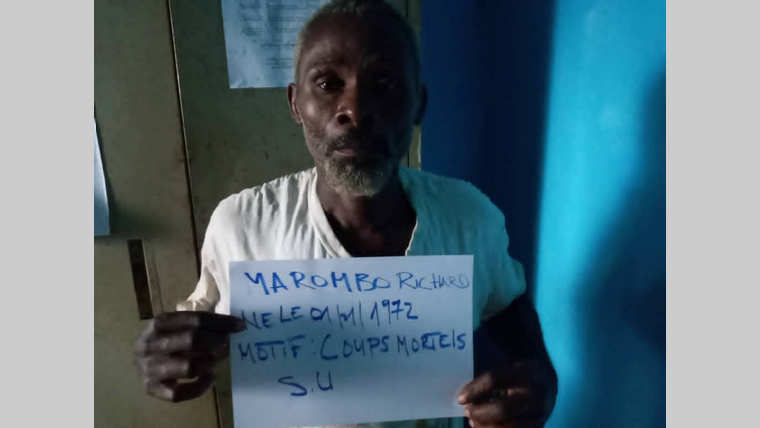 YAROMBO RICHARD
NE LE 01/01/1972
MOTIF: COUPS MORTELS
S.U